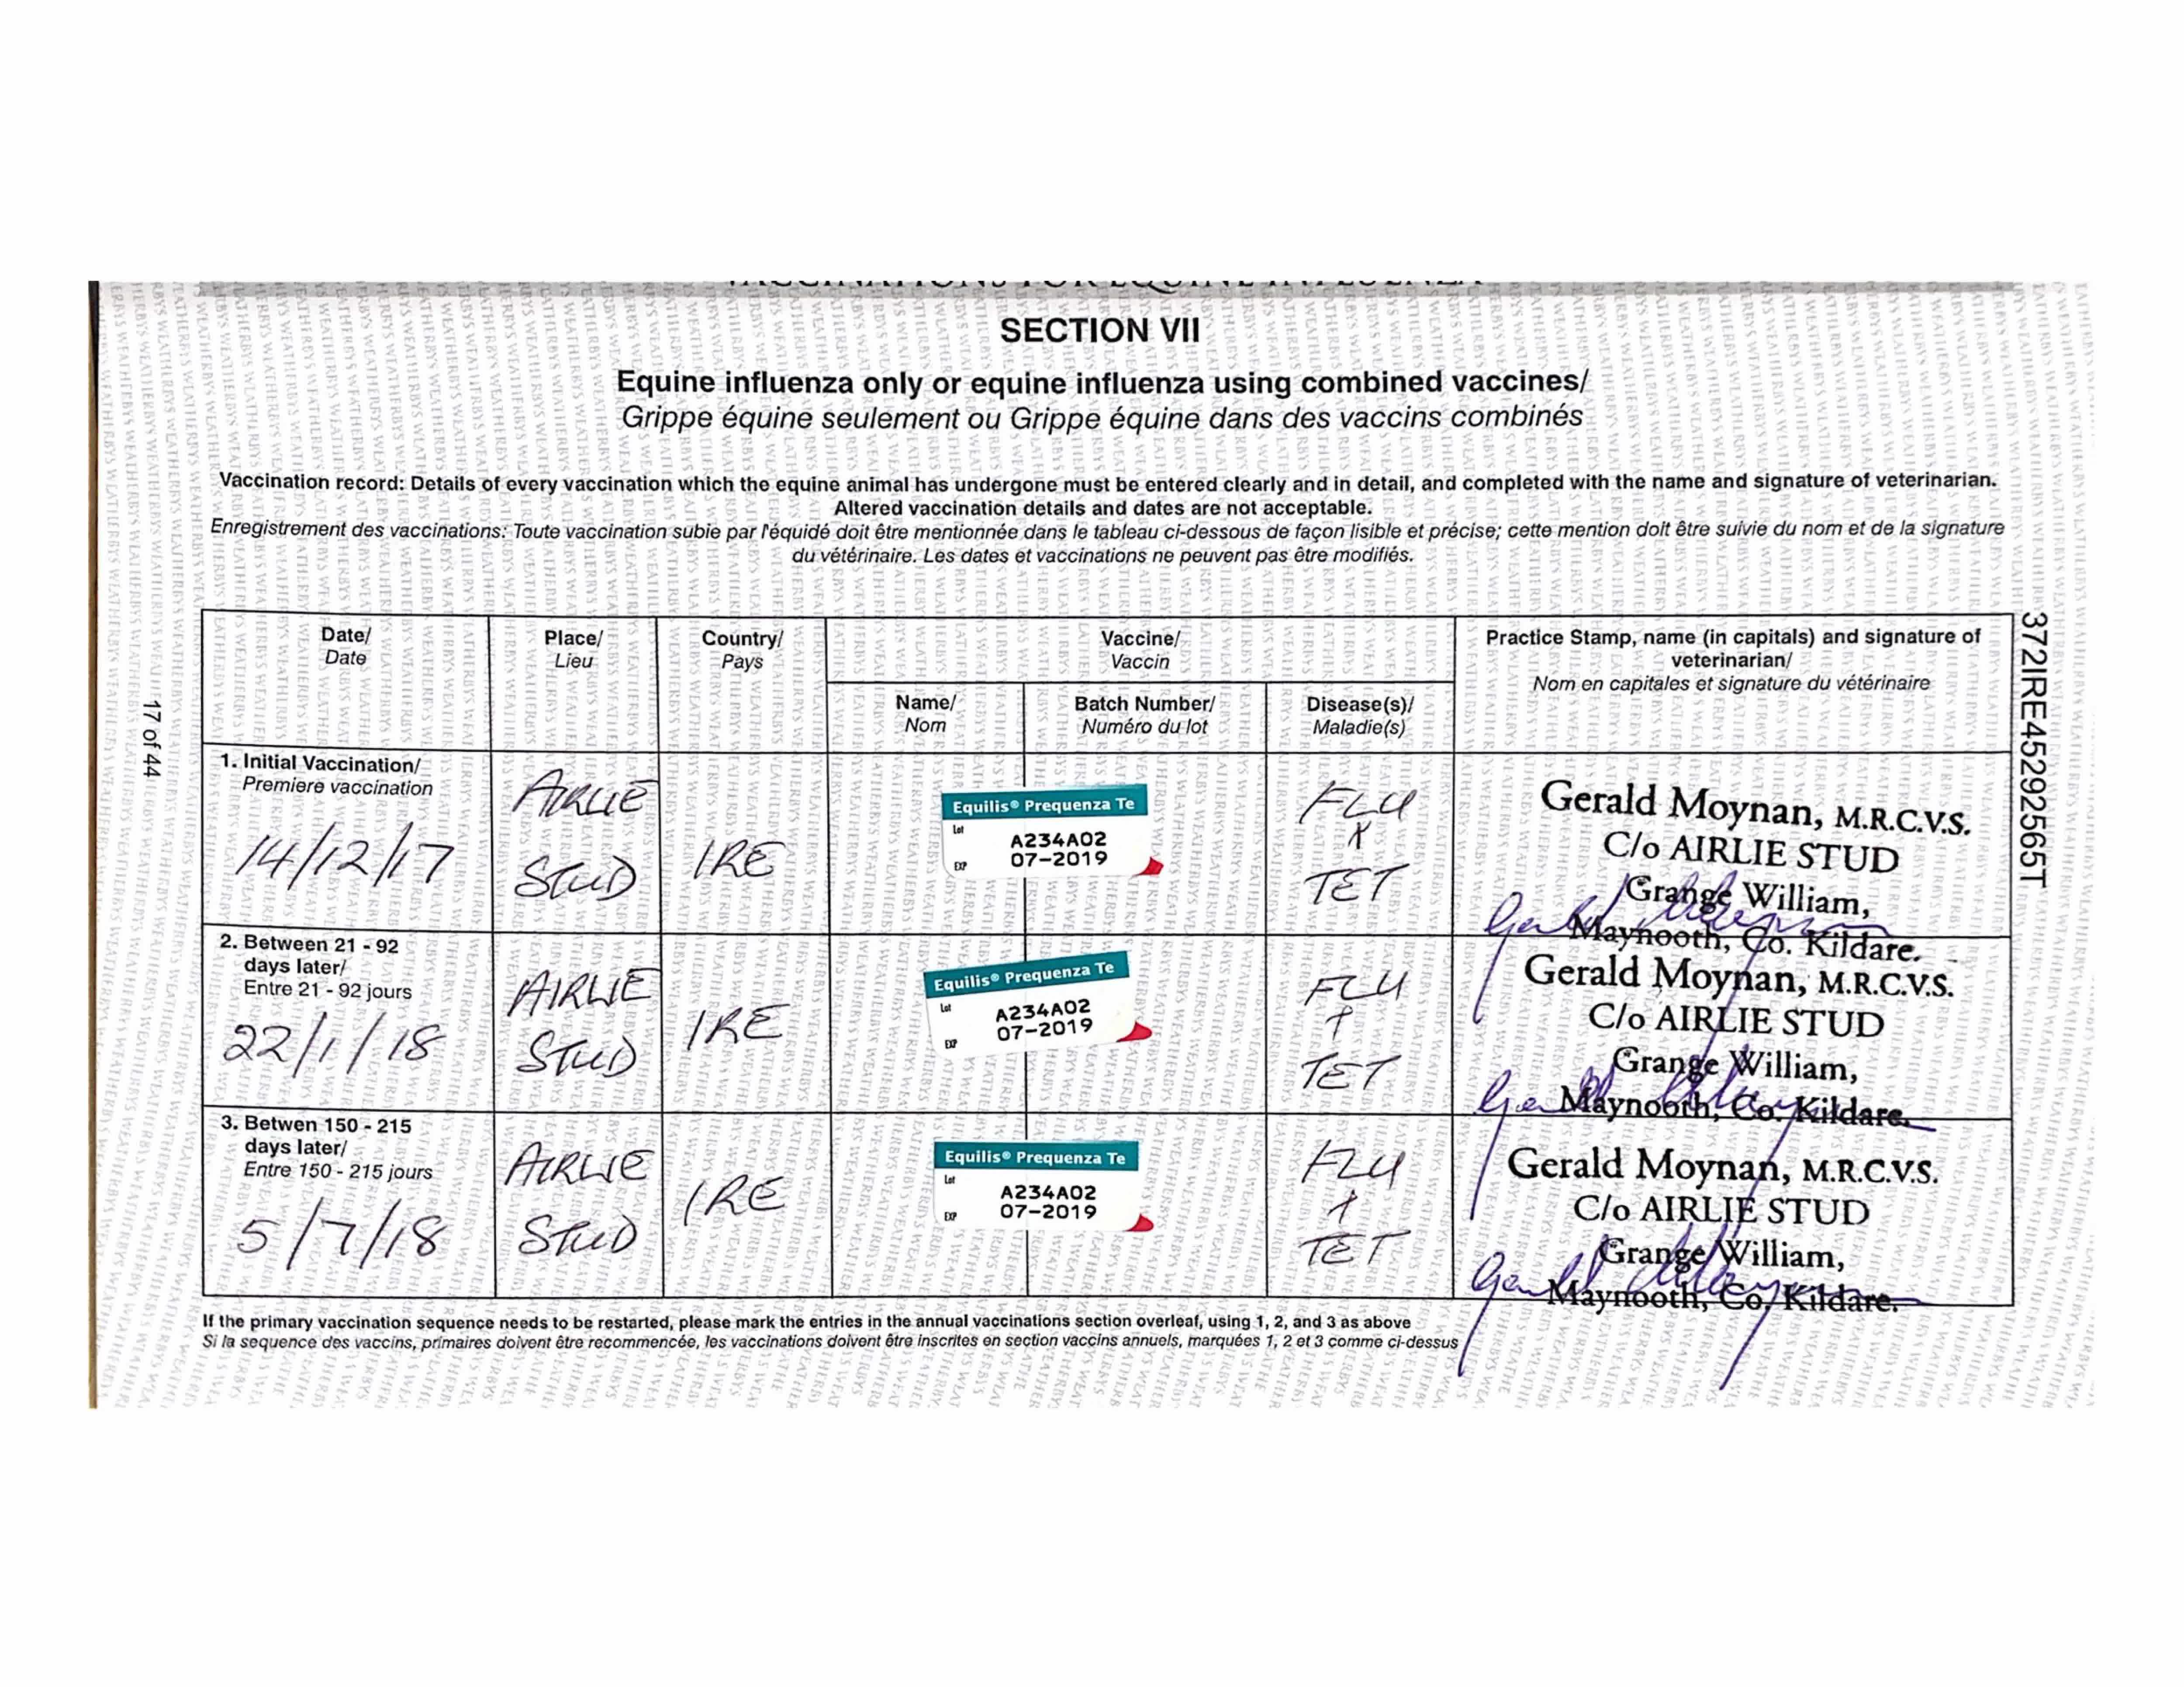 SECTION VII
Equine influenza only or equine influenza using combined vaccines/
Grippe équine seulement ou Grippe équine dans des vaccins combinés
Vaccination record: Details of every vaccination which the equine animal has undergone must be entered clearly and in detail, and completed with the name and signature of veterinarian.
Altered vaccination details and dates are not acceptable.
Enregistrement des vaccinations: Toute vaccination subie par l'équidé doit être mentionnée dans le tableau ci-dessous de façon lisible et précise; cette mention doit être suivie du nom et de la signature
du vétérinaire. Les dates et vaccinations ne peuvent pas être modifiés.
Date/
Date
Place/
Lieu
Country/
Pays
Vaccine/
Vaccin
Name/
Nom
Batch Number/
Numéro du lot
Disease(s)/
Maladie(s)
Practice Stamp, name (in capitals) and signature of
veterinarian/
Nom en capitales et signature du vétérinaire
1. Initial Vaccination/
Premiere vaccination
14/12/17
AIRLIE
STUD
IRE
Equilis® Prequenza Te
Lot
A234A02
EXP
07-2019
FLU
+
TET
Gerald Moynan, M.R.C.V.S.
C/o AIRLIE STUD
Grange William,
Maynooth, Co. Kildare.
2. Between 21 - 92
days later/
Entre 21 - 92 jours
22/1/18
AIRLIE
STUD
IRE
Equilis® Prequenza Te
Lot
A234A02
EXP
07-2019
FLU
+
TET
Gerald Moynan, M.R.C.V.S.
C/o AIRLIE STUD
Grange William,
Maynooth, Co. Kildare.
3. Betwen 150 - 215
days later/
Entre 150 - 215 jours
5/7/18
AIRLIE
STUD
IRE
Equilis® Prequenza Te
Lot
A234A02
EXP
07-2019
FLU
+
TET
Gerald Moynan, M.R.C.V.S.
C/o AIRLIE STUD
Grange William,
Maynooth, Co. Kildare.
If the primary vaccination sequence needs to be restarted, please mark the entries in the annual vaccinations section overleaf, using 1, 2, and 3 as above
Si la sequence des vaccins, primaires doivent être recommencée, les vaccinations doivent être inscrites en section vaccins annuels, marquées 1, 2 et 3 comme ci-dessus
17 of 44
372IRE45292565T